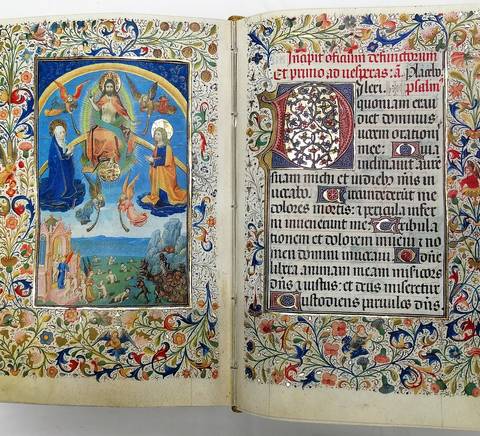 Incipit officium defunctorum
Et primo ad vesperas: a̅ Placebo
Dilexi psalm̅
quoniam exau
diet dominus
vocem orationis
mee. Quia
inclinavit aure̅
suam michi et in dieb9 meis in
vocabo. Circundederu̅t me
dolores mortis: et pericula infer
ni invenerunt me. Tribula
tionem et dolorem inveni: et no
men domini invocavi. O dn̅e
libera animam meam misericors
dn̅s et iustus: et deus n̅r miseretur
Custodiens parvulos dn̅s.